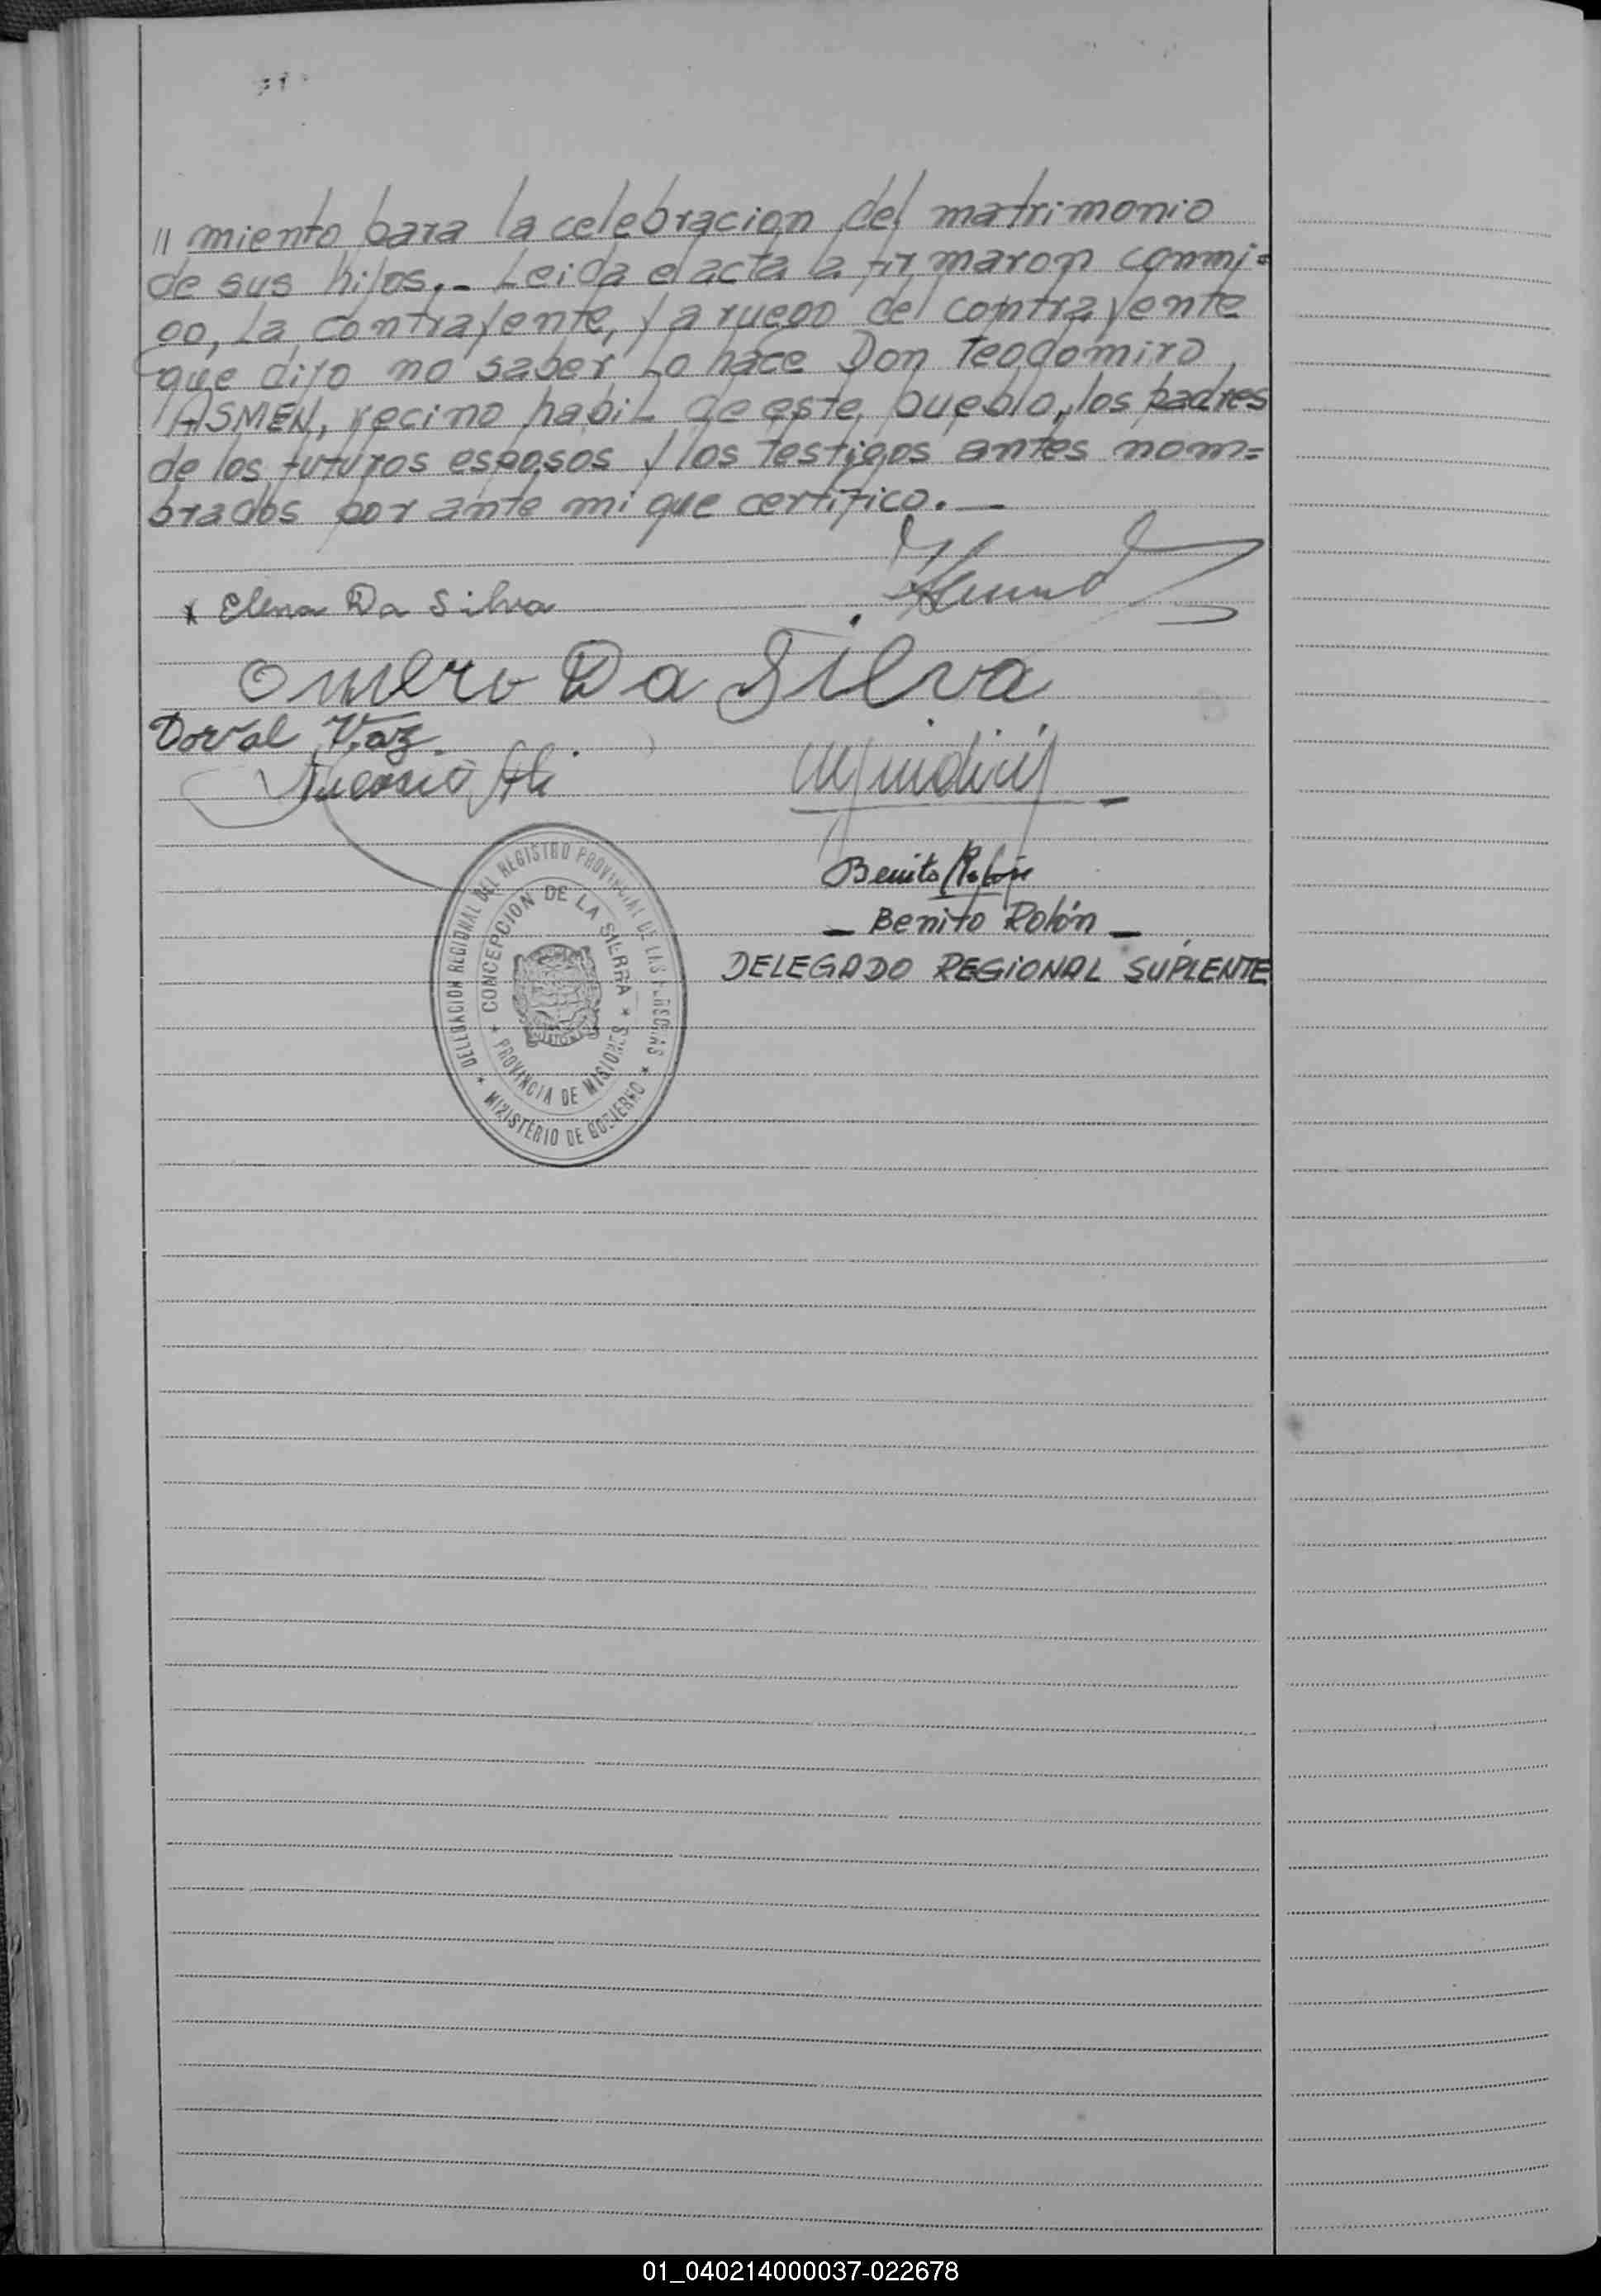 // miento para la celebracion del matrimonio
de sus hijos.- Leida el acta la firmaron conmi=
go, La contrayente, y a ruego del contrayente
que dijo no saber Lo hace Don Teodomiro
ASMEN, vecino habil de este pueblo, los padres
de los futuros esposos y los testigos antes nom=
brados por ante mi que certifico. —
x Elena Da Silva
Omero Da Silva
Dorval Vaz.
Benito Rolón
— Benito Rolón —
DELEGADO REGIONAL SUPLENTE
DELEGACION REGIONAL DEL REGISTRO PROVINCIAL DE LAS PERSONAS
★ MINISTERIO DE GOBIERNO ★
CONCEPCION DE LA SIERRA
★ PROVINCIA DE MISIONES ★
01_040214000037-022678